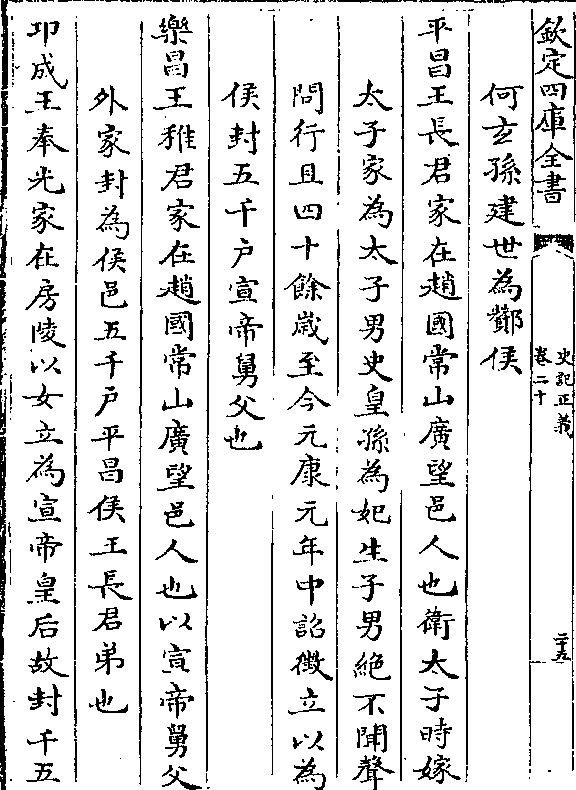 欽定四庫全書
史記正義
卷二十
二十五
何玄孫建世為酇侯
平昌王長君家在趙國常山廣望邑人也衛太子時嫁
太子家為太子男史皇孫為妃生子男絶不聞聲
問行且四十餘嵗至今元康元年中詔徴立以為
侯封五千户宣帝舅父也
樂昌王稚君家在趙國常山廣望邑人也以宣帝舅父
外家封為侯邑五千户平昌侯王長君弟也
卭成王奉光家在房陵以女立為宣帝皇后故封千五